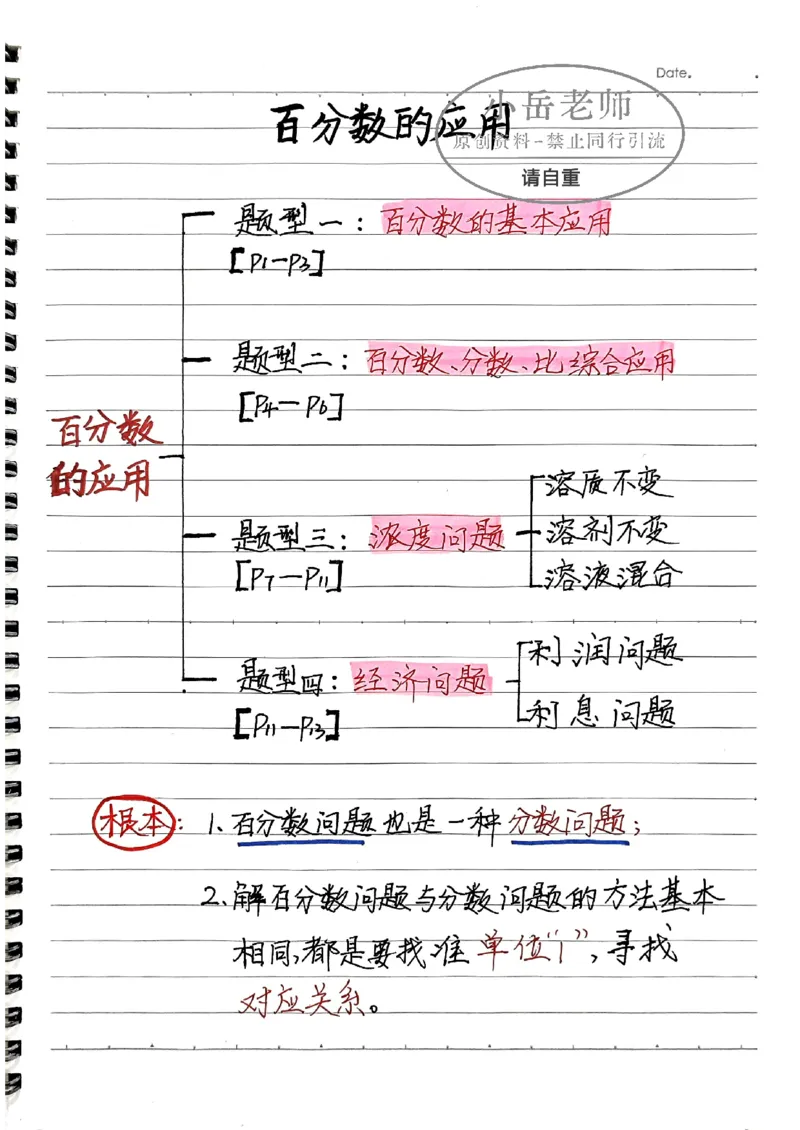 Date.
小岳老师
百分数的应用
原创资料-禁止同行引流
请自重
题型一：百分数的基本应用
[P1—P3]
题型二：百分数、分数、比综合应用
[P4—P6]
百分数
的应用
溶质不变
题型三：浓度问题
溶剂不变
[P7—P11]
溶液混合
利润问题
题型四：经济问题
利息问题
[P11—P13]
根本：1.百分数问题也是一种分数问题；
2.解百分数问题与分数问题的方法基本
相同,都是要找准单位“1”,寻找
对应关系。